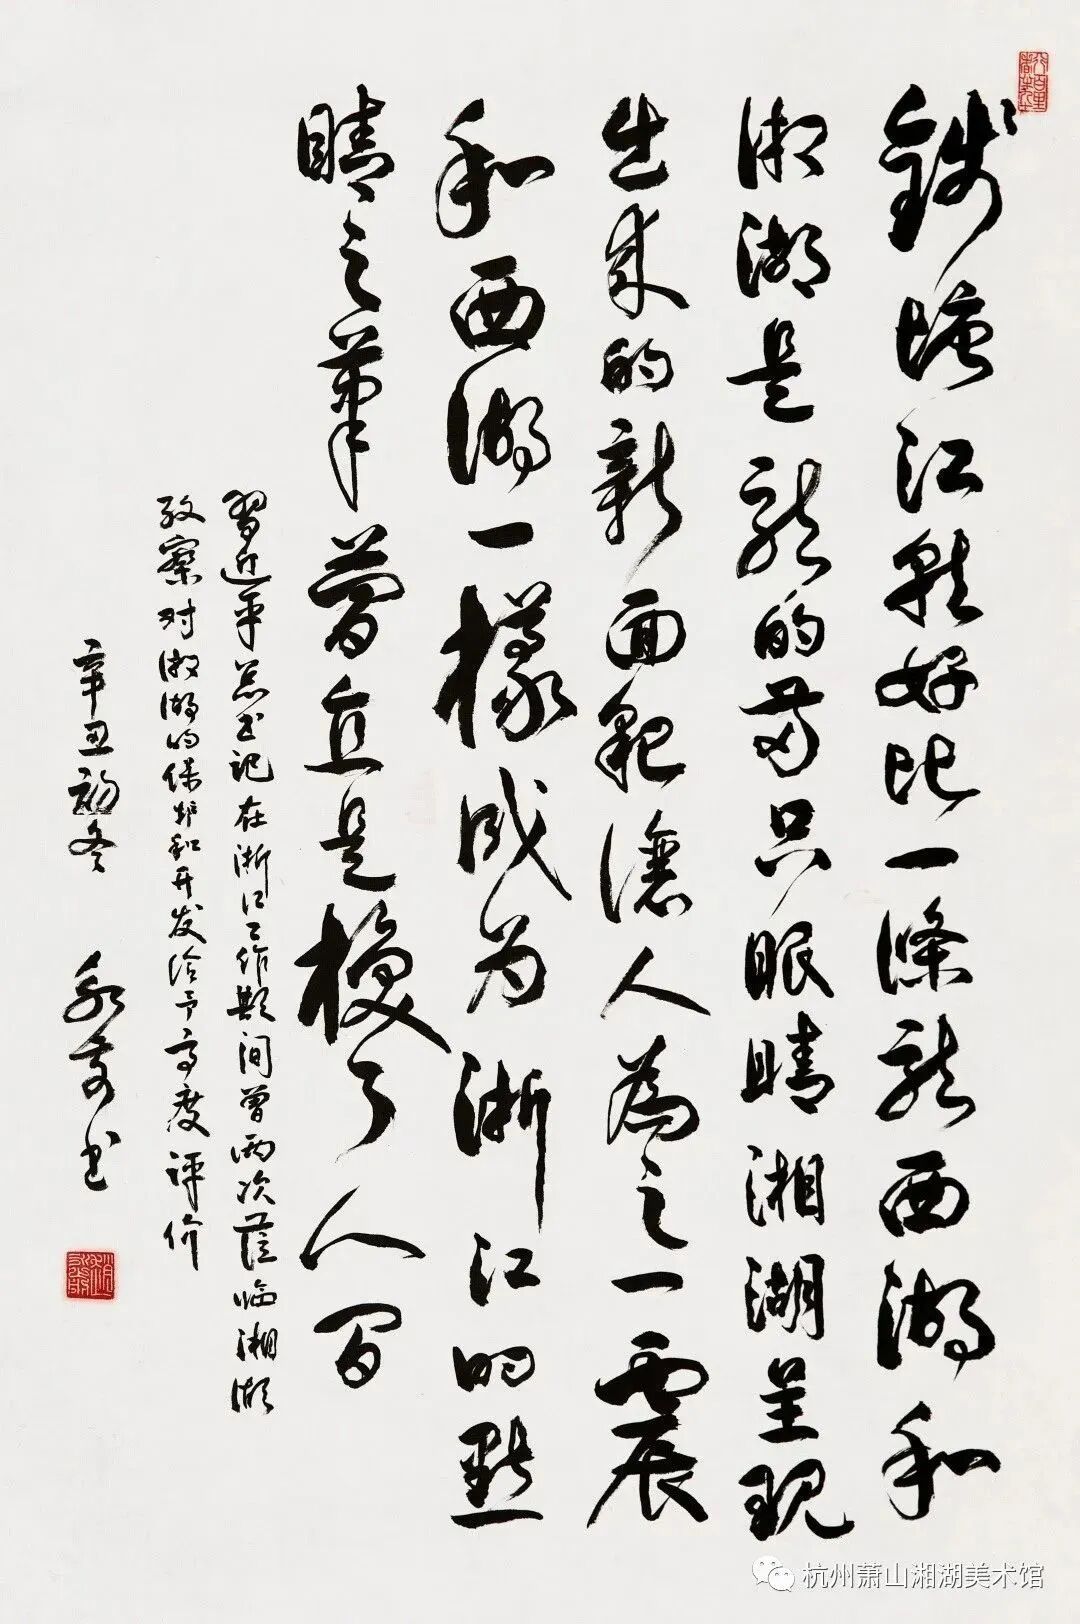 錢塘江就好比一條龍西湖和
湘湖是龍的兩只眼睛湘湖呈現
出来的新面貌讓人為之一震
和西湖一樣成为浙江的點
睛之筆簡直是換了人间
習近平总书记在浙江工作期间曾两次莅临湘湖
考察对湘湖的保护和开发给予高度评价
辛丑初冬 书
杭州萧山湘湖美术馆